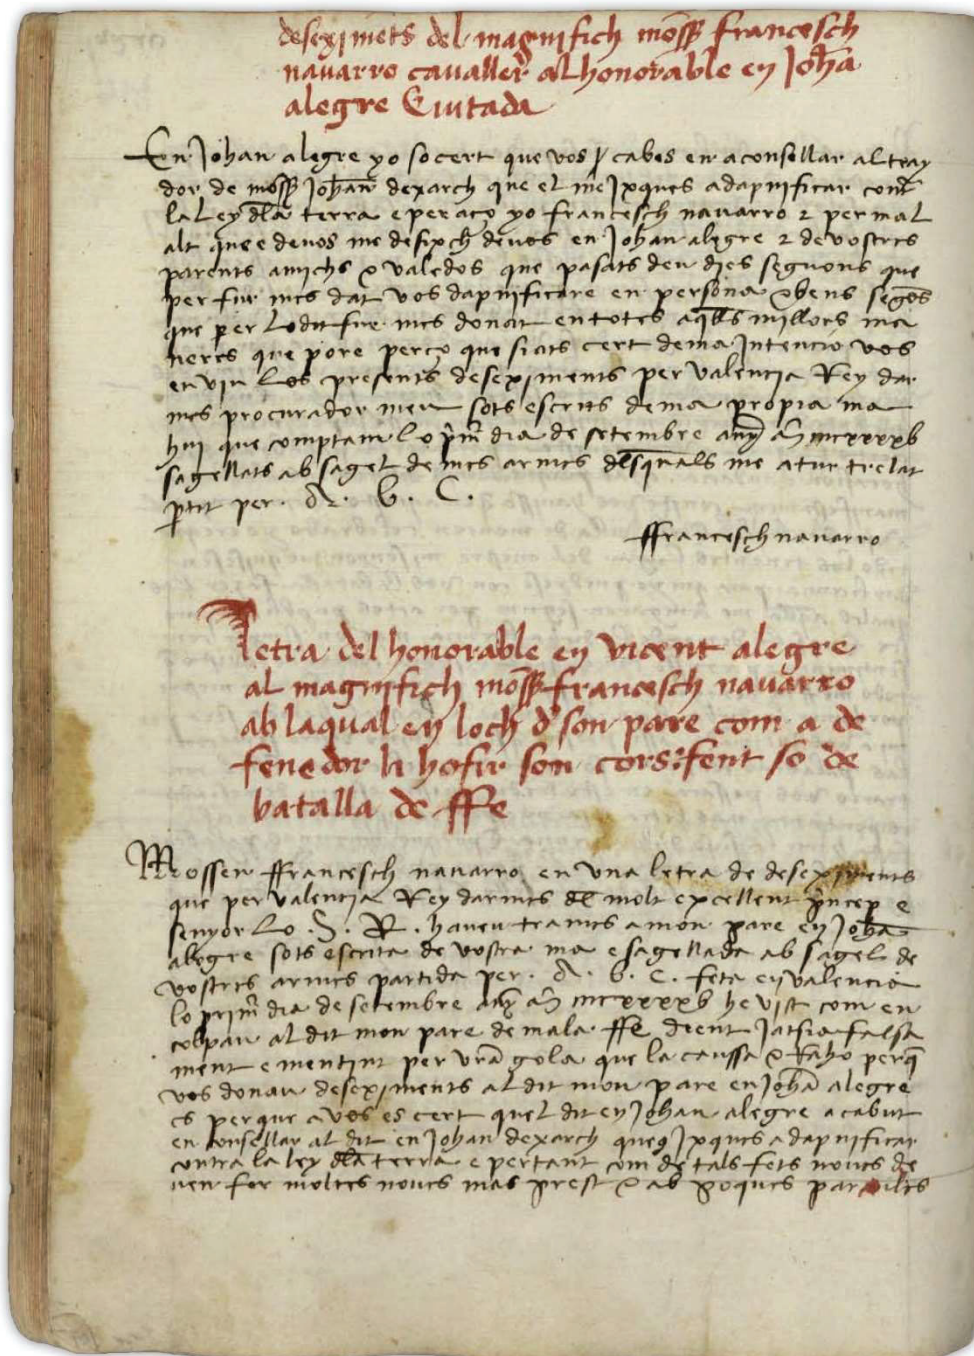 desexime̅ts del magnifich moss̅ francesch
nauarro cavaller al honorable en Joha̅
alegre Ciutada
En Johan alegre yo so cert que vos y cabes en aconsellar al tray
dor de moss̅ Johan dexarch que el me ixques a dapnificar cont̅
la ley dla̅ terra e per aço yo francesch nauarro z per mal
alt que e de vos me desixch de vos en Johan alegre z de vostres
parents amichs & valedos que pasats deu dies seguons que
per fur mes dat vos dapnificare en persona & bens sego̅s
que per lo dit fur mes donat en totes aq̅lls millors ma
neres que pore perço que siats cert de ma intencio vos
enviu los presents deseximents per valencia Rey dar
mes procurador meu sots escrits de ma propia ma
hui que comptam lo p̅m̅ dia de setembre any m̅ mcxxxxb
sagellats ab sagel de mes armes dels quals me atur trelat
p̅tit per . A . b . C .
ffrancesch nauarro
letra del honorable en vicent alegre
al magnifich moss̅ francesch nauarro
ab la qual en loch d' son pare com a de
fenedor li hofir son cors: fent so de
batalla de ffe
Mossen ffrancesch nauarro en una letra de deseximents
que per valencia Rey darmes del̅ molt excellent p̅ncep e
senyor lo . S . R . haueu trames a mon pare en Joha̅
alegre sots escrita de vostra ma e sagellada ab sagel de
vostres armes partida per . A . b . c . feta en valencia
lo prim̅ dia de setembre any m̅ mcxxxxb he vist com en
colpau al dit mon pare de mala ffe dient Jatsia falsa
ment e mentint per vr̅a gola que la caussa & raho perq̅
vos donau deseximents al dit mon pare en Joha̅ alegre
es perque a vos es cert quel dit en Johan alegre a cabut
en consellar al dit en Johan dexarch queq ixques a dapnificar
contra la ley dla̅ terra e per tant com de tals fets noves de
uen fer moltes noves mas prest & ab poques paraules